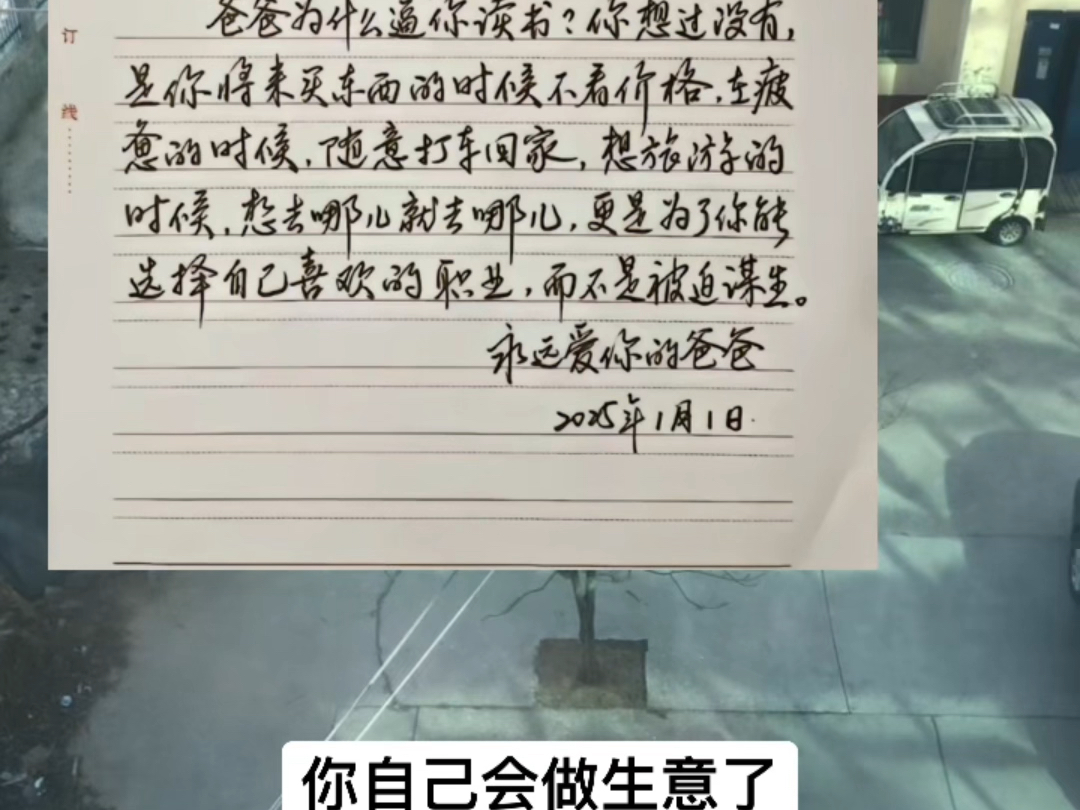 订
线
爸爸为什么逼你读书？你想过没有，
是你将来买东西的时候不看价格，在疲
惫的时候，随意打车回家，想旅游的
时候，想去哪儿就去哪儿，更是为了你能
选择自己喜欢的职业，而不是被迫谋生。
永远爱你的爸爸
2025年1月1日.
你自己会做生意了